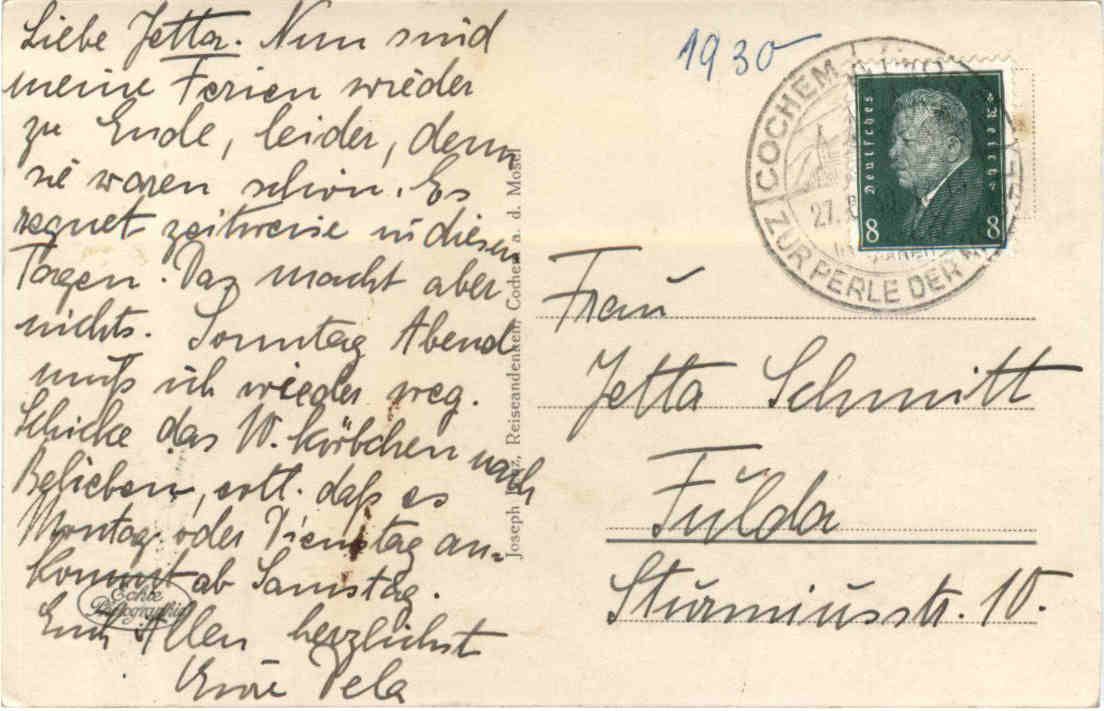 Liebe Jetta. Nun sind
meine Ferien wieder
zu Ende, leider, denn
sie waren schön. Es
regnet zeitweise in diesen
Tagen. Das macht aber
nichts. Sonntag Abend
muß ich wieder weg.
Schicke das W. Körbchen nach
Belieben, evtl. daß es
Montag oder Dienstag an-
kommt ab Samstag.
Euch Allen herzlichst
Eure
Echte
Photographie
Joseph Reiseandenken, Cochem a. d. Mosel
1930
COCHEM
27.
ZUR PERLE DER
Deutsches Reich
8 8
Frau
Jetta Schmitt
Fulda
Sturmiusstr. 10.